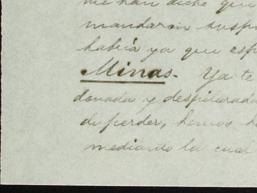 me han dicho que
mandaran susp
había ya que esp
Minas. Ya te
donada y despilarada
de perder, hemos h
mediante la cual